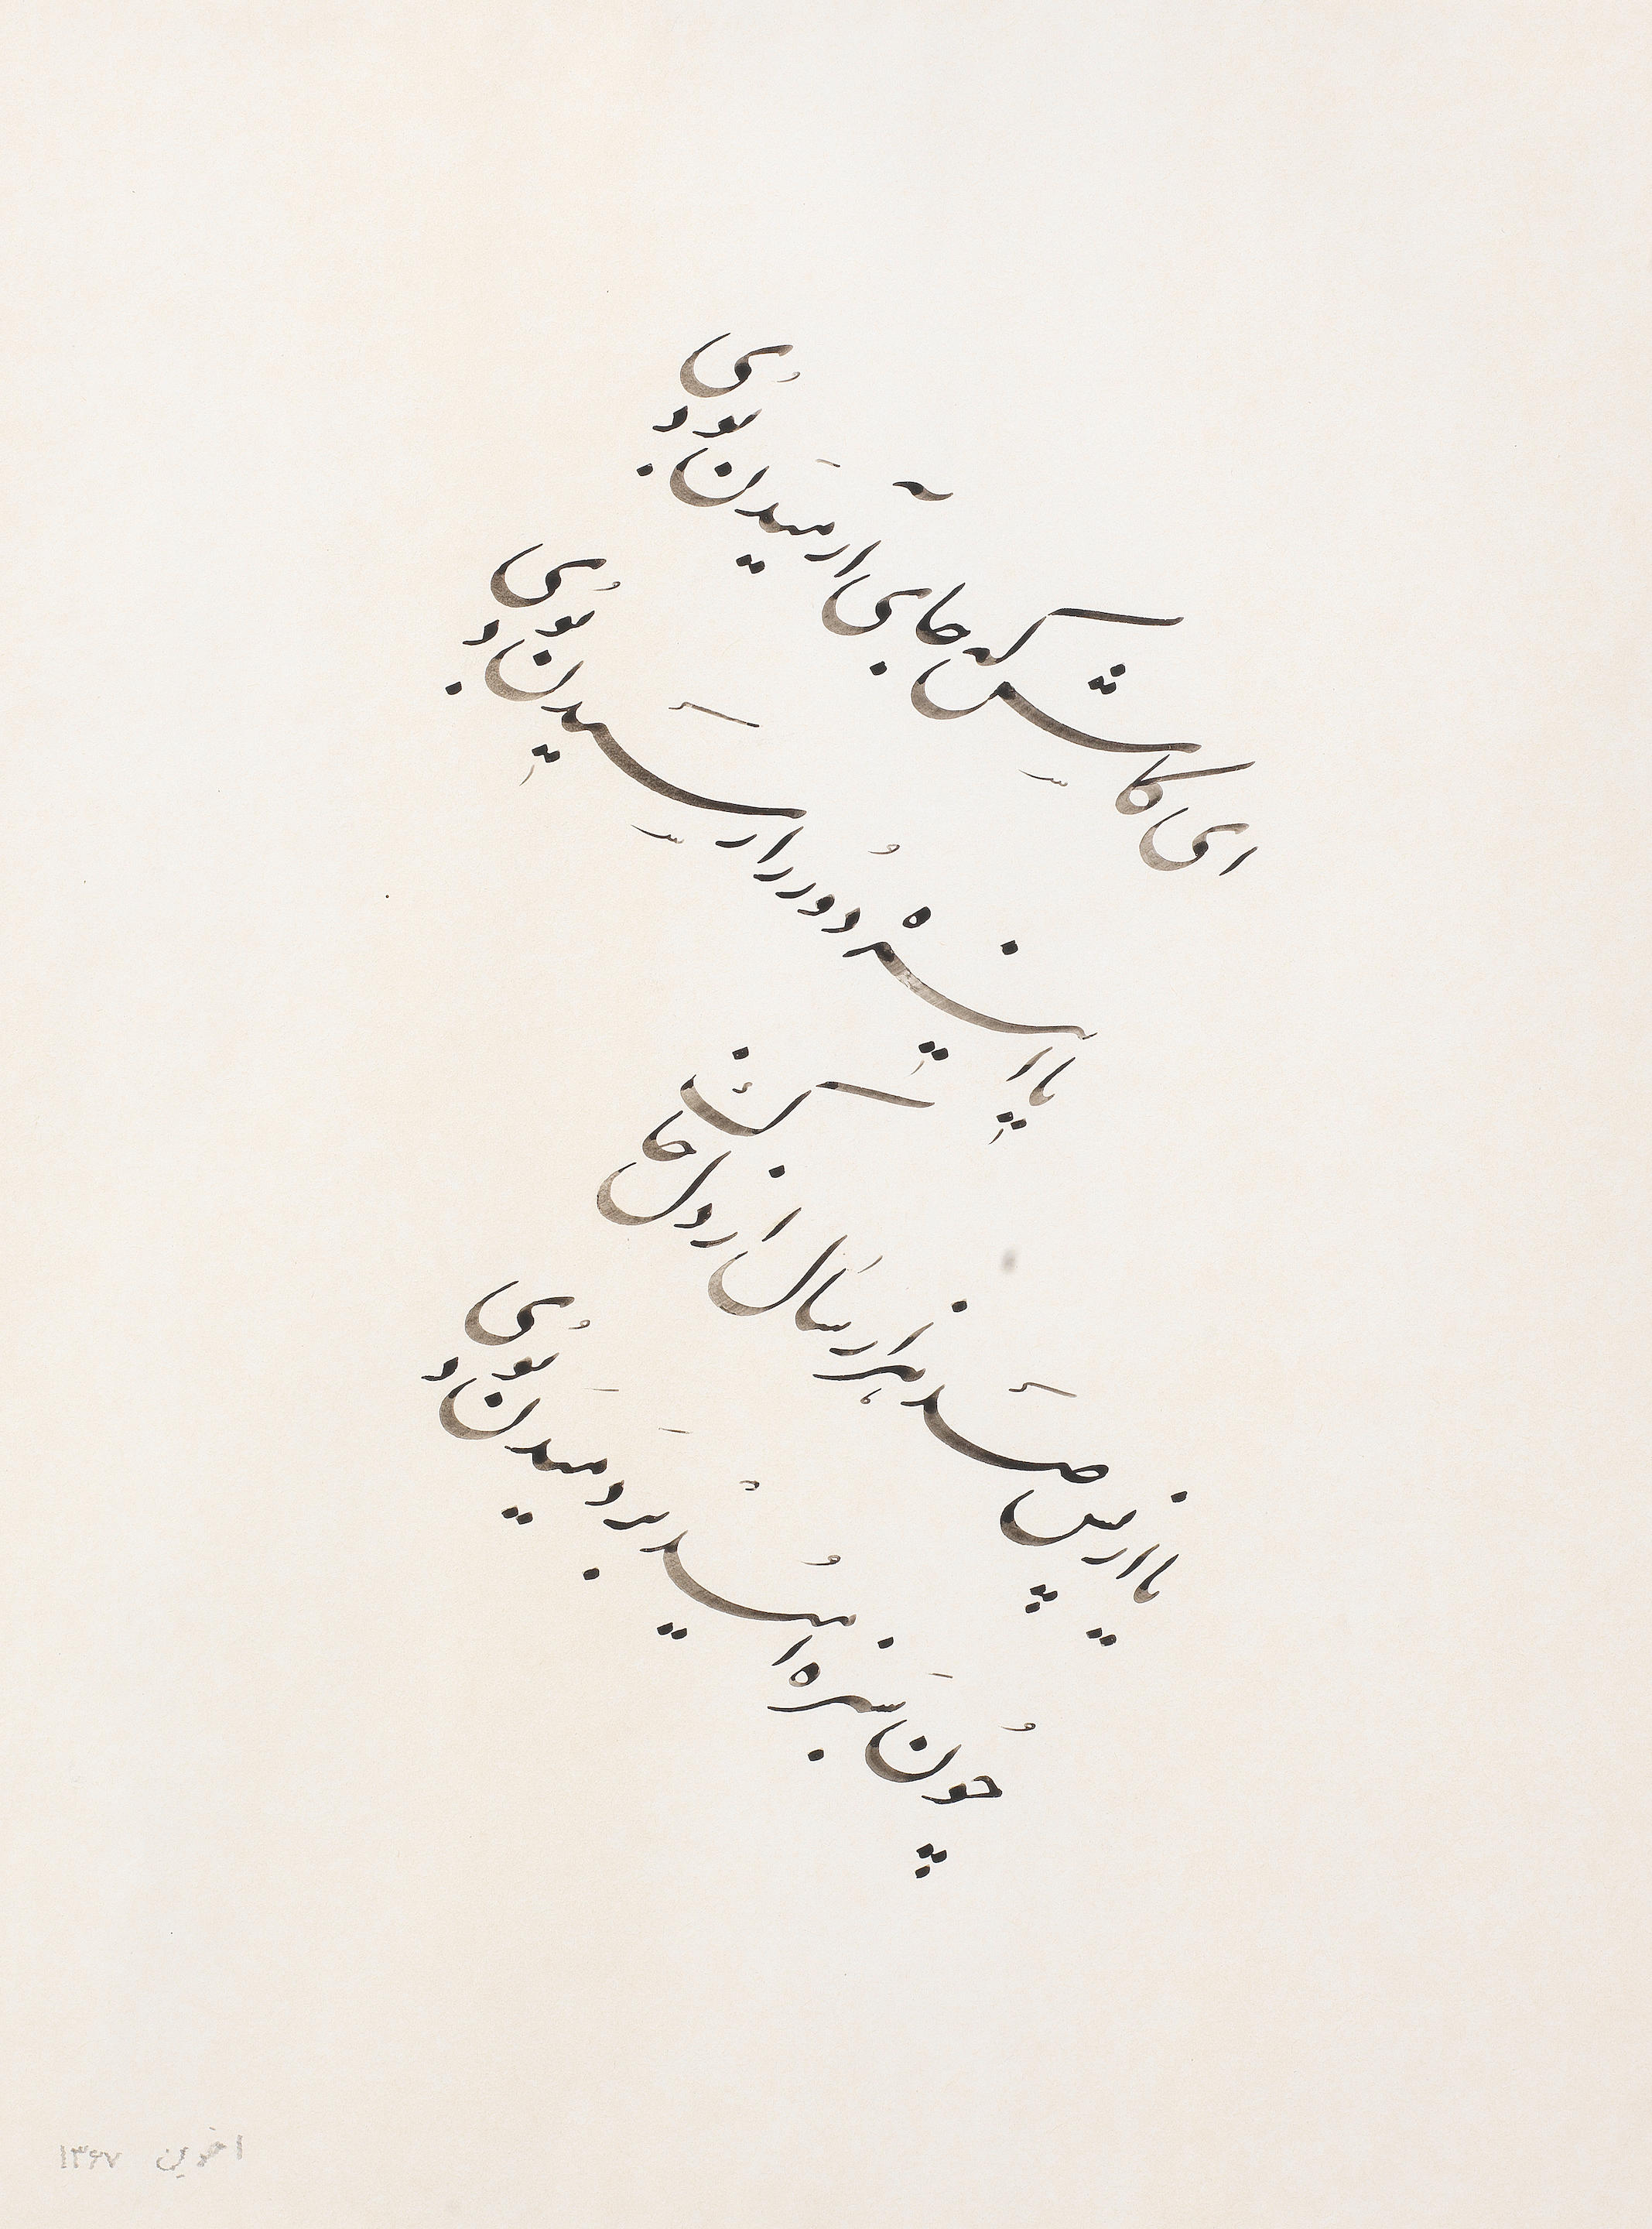 ای کاش که جای آرمیدن بودی
یا این ره دور را رسیدن بودی
یا از پس صد هزار سال از دل خاک
چون سبزه امید بر دمیدن بودی
اخوین ۱۳۶۷